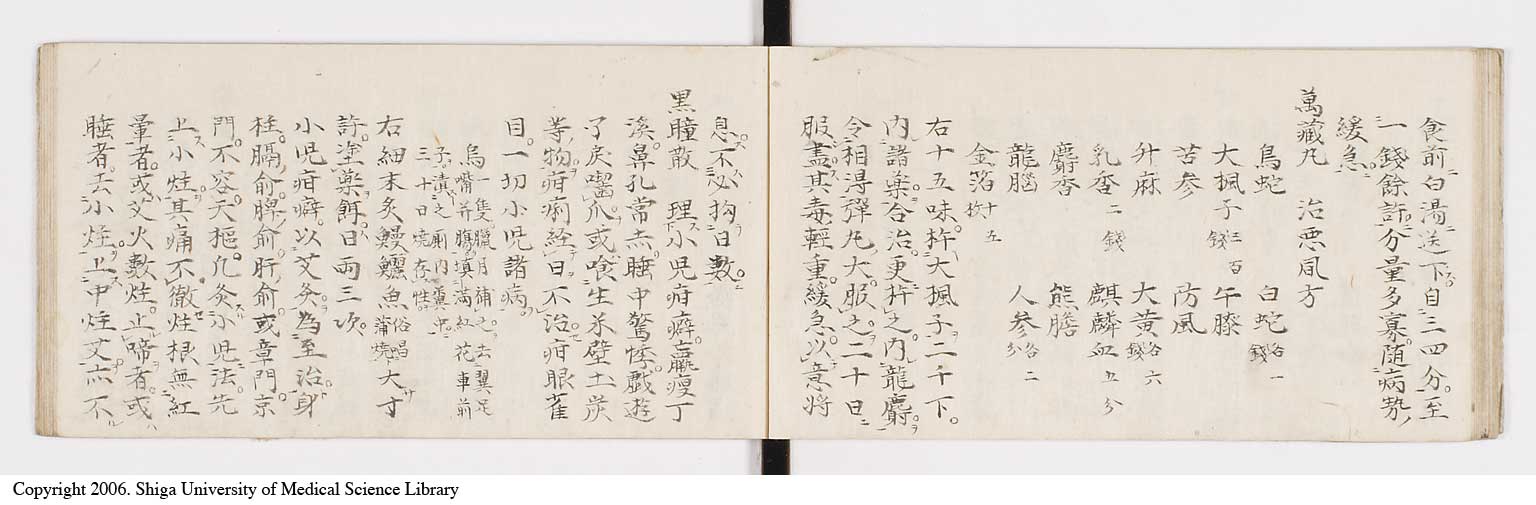 食前白湯送下自三四分至
一錢餘許分量多寡随病勢
緩急
萬藏丸　治悪風方
烏蛇　白蛇各一錢
大楓子三百錢　午膝
苦参　防風
升麻　大黄各六錢
乳香二錢　麒麟血五分
麝香　熊膽
龍腦　人参各二分
金箔十五枚
右十五味杵大楓子二千下
内諸薬合治更杵之内龍麝
令相得彈丸大服之二十日
服盡其毒輕重緩急以意将
息不必拘日數
黒瞳散　理小児疳癖羸痩丁
溪鼻孔常赤睡中驚悸戲遊
了戻囓爪或喰生米壁土炭
等物疳痢経日不治疳眼雀
目一切小児諸病
烏一隻臘月捕之去翼足
嘴并腸填満紅花車前
子漬之厠内糞虫
三十日燒存性
右細末炙鰻鱺魚俗昌蒲燒大寸
許塗薬餌日両三次
小児疳癖以艾灸為至治身
柱膈俞脾俞肝俞或章門京
門不容天樞凢灸小児法先
上小炷其痛不徹炷根無紅
暈者或艾火數炷止啼者或
睡者去小炷上中炷艾亦不
Copyright 2006. Shiga University of Medical Science Library